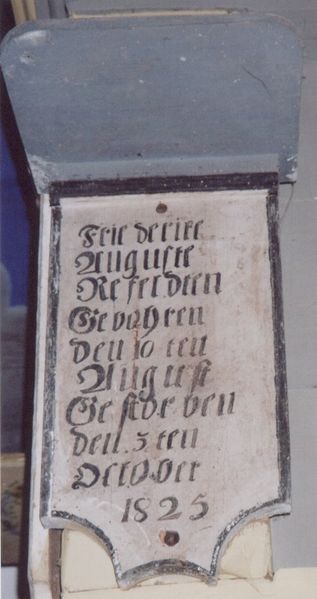 Frie derike
Auguste
Refeldten
Gebohren
den 10 ten
August
Ge stor ben
den 3 ten
October
1825